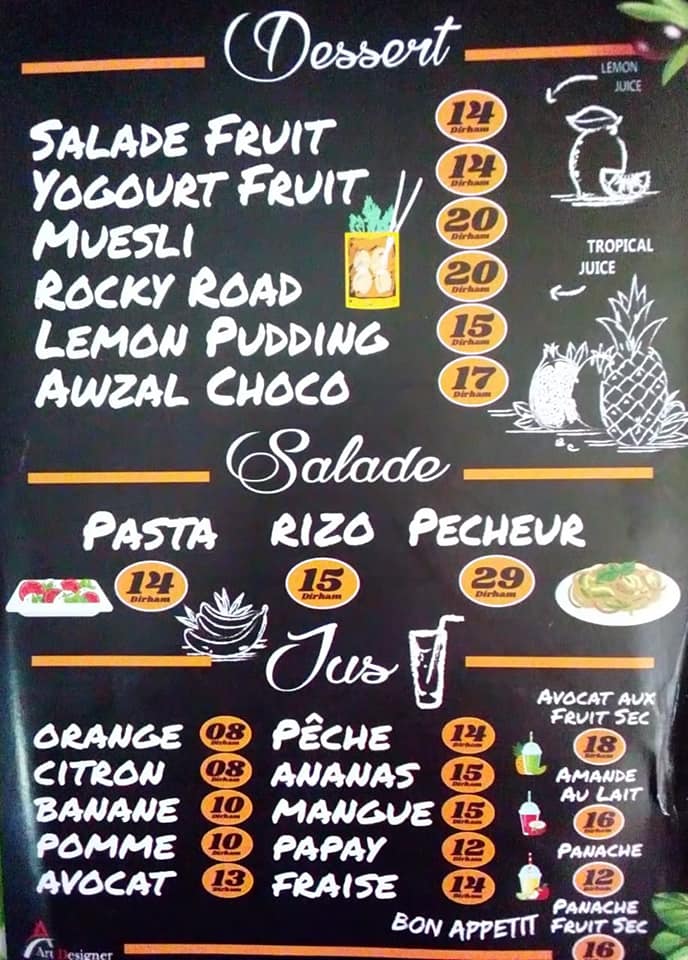 Dessert
LEMON
JUICE
SALADE FRUIT 14 Dirham
YOGOURT FRUIT 14 Dirham
MUESLI 20 Dirham
TROPICAL
JUICE
ROCKY ROAD 20 Dirham
LEMON PUDDING 15 Dirham
AWZAL CHOCO 17 Dirham
Salade
PASTA RIZO PECHEUR
14 Dirham 15 Dirham 29 Dirham
Jus
ORANGE 08 Dirham PÊCHE 14 Dirham
CITRON 08 Dirham ANANAS 15 Dirham
BANANE 10 Dirham MANGUE 15 Dirham
POMME 10 Dirham PAPAY 12 Dirham
AVOCAT 13 Dirham FRAISE 14 Dirham
AVOCAT AUX
FRUIT SEC
18 Dirham
AMANDE
AU LAIT
16 Dirham
PANACHE
12 Dirham
PANACHE
FRUIT SEC
16
BON APPETIT
Art Designer